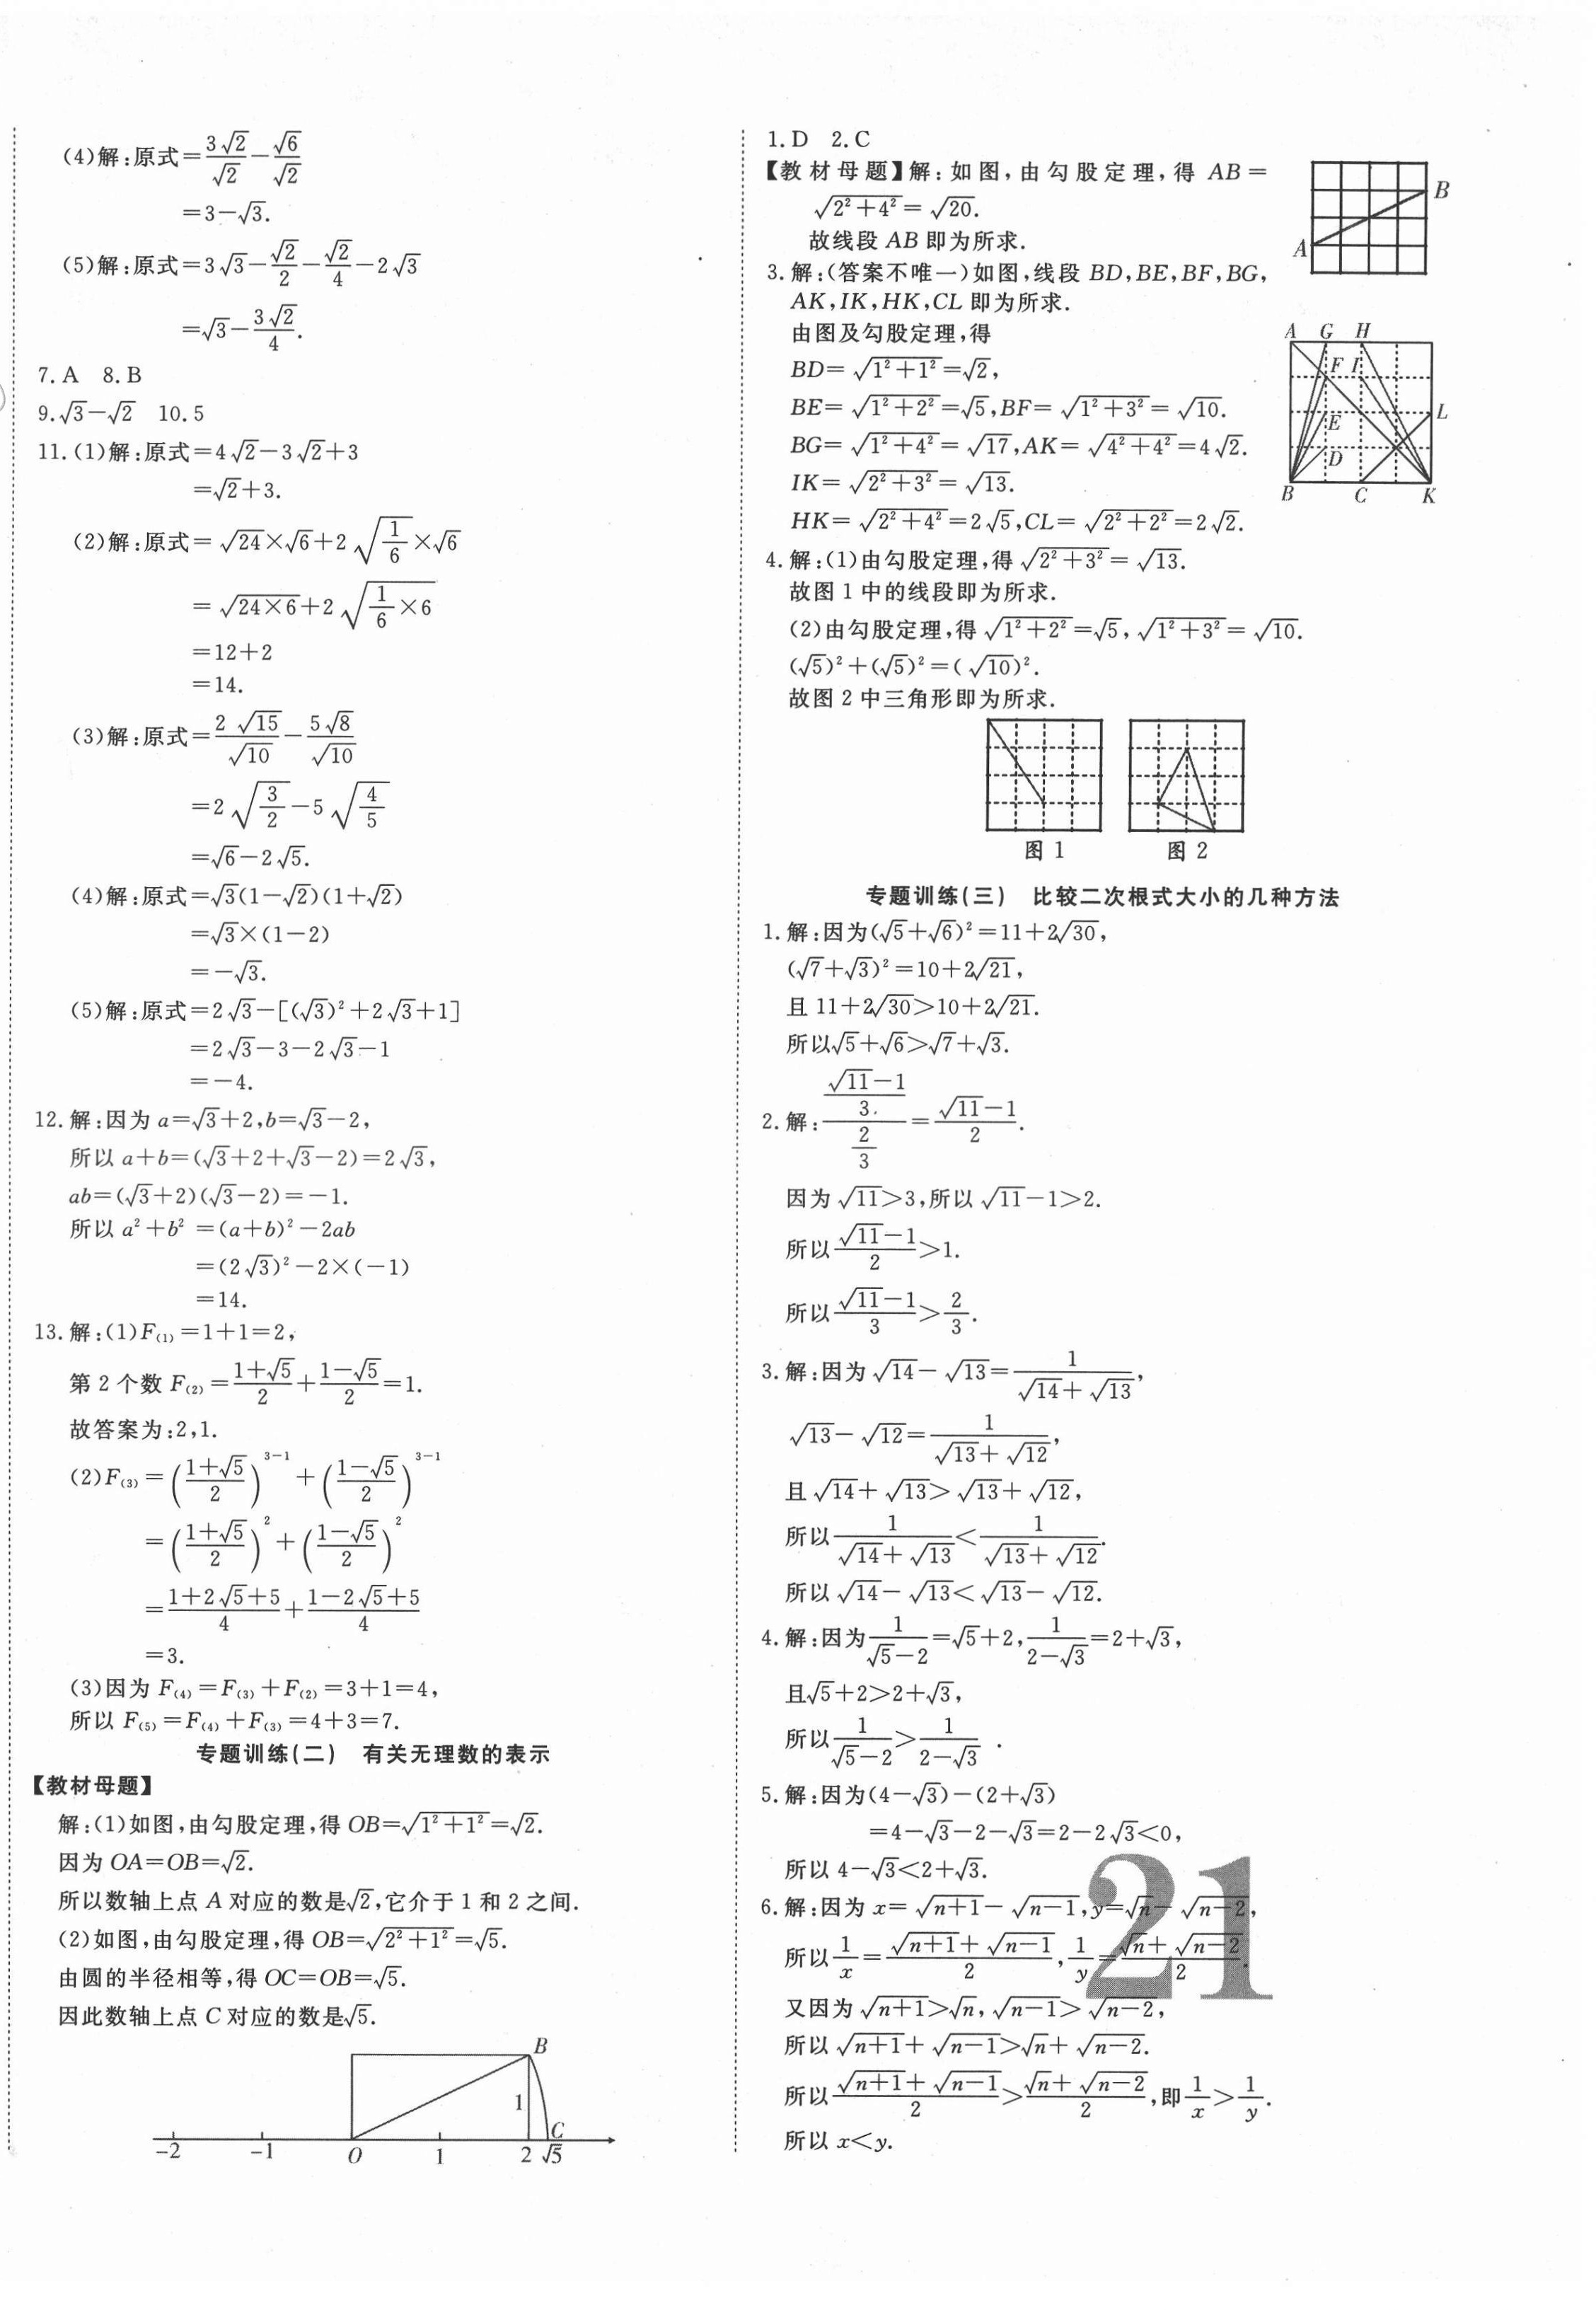 (4)解:原式=3√2/√2−√6/√2
=3−√3.
(5)解:原式=3√3−√2/2−√2/4−2√3
=√3−3√2/4.
7.A 8.B
9.√3−√2 10.5
11.(1)解:原式=4√2−3√2+3
=√2+3.
(2)解:原式=√24×√6+2√(1/6)×√6
=√(24×6)+2√(1/6×6)
=12+2
=14.
(3)解:原式=2√15/√10−5√8/√10
=2√(3/2)−5√(4/5)
=√6−2√5.
(4)解:原式=√3(1−√2)(1+√2)
=√3×(1−2)
=−√3.
(5)解:原式=2√3−[(√3)²+2√3+1]
=2√3−3−2√3−1
=−4.
12.解:因为a=√3+2,b=√3−2,
所以a+b=(√3+2+√3−2)=2√3,
ab=(√3+2)(√3−2)=−1.
所以a²+b²=(a+b)²−2ab
=(2√3)²−2×(−1)
=14.
13.解:(1)F₍₁₎=1+1=2,
第2个数F₍₂₎=(1+√5)/2+(1−√5)/2=1.
故答案为:2,1.
(2)F₍₃₎=((1+√5)/2)³⁻¹+((1−√5)/2)³⁻¹
=((1+√5)/2)²+((1−√5)/2)²
=(1+2√5+5)/4+(1−2√5+5)/4
=3.
(3)因为F₍₄₎=F₍₃₎+F₍₂₎=3+1=4,
所以F₍₅₎=F₍₄₎+F₍₃₎=4+3=7.
专题训练(二) 有关无理数的表示
【教材母题】
解:(1)如图,由勾股定理,得OB=√(1²+1²)=√2.
因为OA=OB=√2.
所以数轴上点A对应的数是√2,它介于1和2之间.
(2)如图,由勾股定理,得OB=√(2²+1²)=√5.
由圆的半径相等,得OC=OB=√5.
因此数轴上点C对应的数是√5.
B
1
C
−2 −1 O 1 2 √5
1.D 2.C
【教材母题】解:如图,由勾股定理,得AB=
√(2²+4²)=√20.
故线段AB即为所求.
B
A
3.解:(答案不唯一)如图,线段BD,BE,BF,BG,
AK,IK,HK,CL即为所求.
由图及勾股定理,得
BD=√(1²+1²)=√2,
BE=√(1²+2²)=√5,BF=√(1²+3²)=√10.
BG=√(1²+4²)=√17,AK=√(4²+4²)=4√2.
IK=√(2²+3²)=√13.
HK=√(2²+4²)=2√5,CL=√(2²+2²)=2√2.
A G H
F I
L
E
D
B C K
4.解:(1)由勾股定理,得√(2²+3²)=√13.
故图1中的线段即为所求.
(2)由勾股定理,得√(1²+2²)=√5,√(1²+3²)=√10.
(√5)²+(√5)²=(√10)².
故图2中三角形即为所求.
图1 图2
专题训练(三) 比较二次根式大小的几种方法
1.解:因为(√5+√6)²=11+2√30,
(√7+√3)²=10+2√21,
且11+2√30>10+2√21.
所以√5+√6>√7+√3.
2.解:((√11−1)/3)/(2/3)=(√11−1)/2.
因为√11>3,所以√11−1>2.
所以(√11−1)/2>1.
所以(√11−1)/3>2/3.
3.解:因为√14−√13=1/(√14+√13),
√13−√12=1/(√13+√12),
且√14+√13>√13+√12,
所以1/(√14+√13)<1/(√13+√12).
所以√14−√13<√13−√12.
4.解:因为1/(√5−2)=√5+2,1/(2−√3)=2+√3,
且√5+2>2+√3,
所以1/(√5−2)>1/(2−√3).
5.解:因为(4−√3)−(2+√3)
=4−√3−2−√3=2−2√3<0,
所以4−√3<2+√3.
6.解:因为x=√(n+1)−√(n−1),y=√n−√(n−2),
所以1/x=(√(n+1)+√(n−1))/2,1/y=(√n+√(n−2))/2.
又因为√(n+1)>√n,√(n−1)>√(n−2),
所以√(n+1)+√(n−1)>√n+√(n−2).
所以(√(n+1)+√(n−1))/2>(√n+√(n−2))/2,即1/x>1/y.
所以x<y.
21